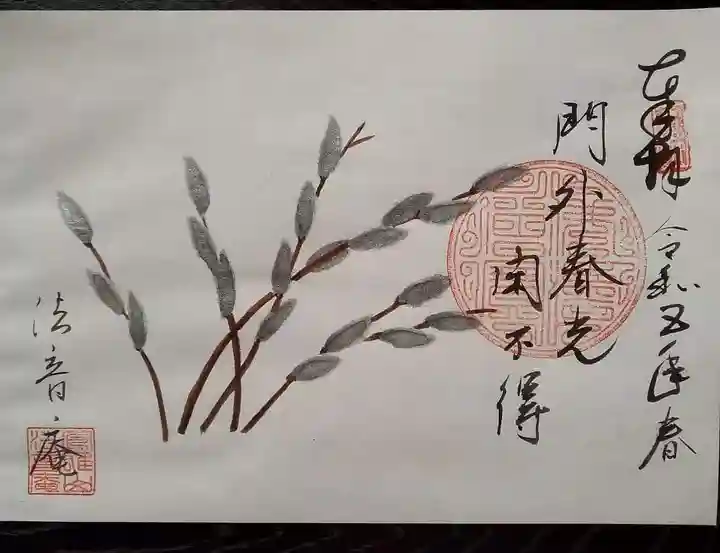 奉拝 令和五年春
門外春光
閑不得
法音庵